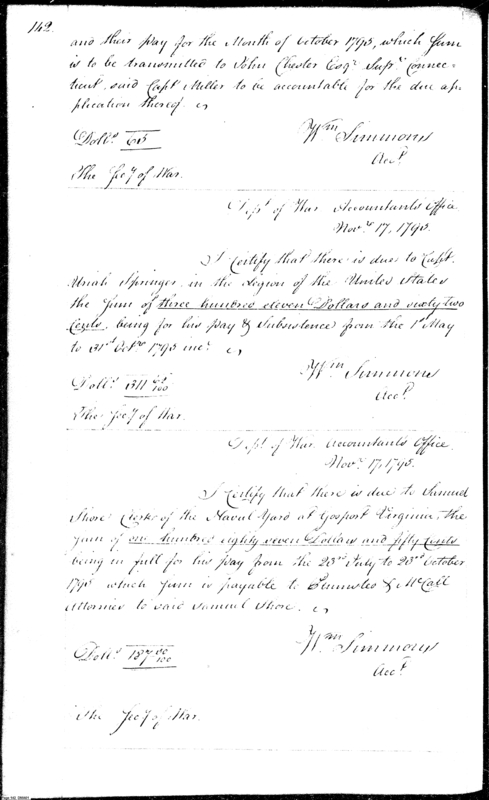 142.
and their pay for the Month of October 1795, which Sum
is to be transmitted to John Chester Esqr. Supr. Connec-
ticut. said Capt. Miller to be accountable for the due ap-
plication thereof.
Dolls. 615
Wm Simmons
Acct.
The Secy of War.
Dept. of War Accountants Office
Novr. 17, 1795.
I Certify that there is due to Capt.
Uriah Springer in the Legion of the United States
the Sum of three hundred eleven Dollars and sixty two
Cents, being for his pay & Subsistence from the 1st May
to 31st Octr. 1795 inc.
Dolls. 311 62/100
Wm Simmons
Acct.
The Secy of War.
Dept. of War Accountants Office.
Novr. 17, 1795.
I Certify that there is due to Samuel
Shore Clerk of the Naval Yard at Gosport Virginia, the
Sum of one hundred eighty seven Dollars and fifty Cents
being in full for his pay from the 23rd July to 23rd October
1795 which Sum is payable to & McCall
Attornies to said Samuel Shore.
Dolls. 187 50/100
Wm Simmons
Acct.
The Secy of War.